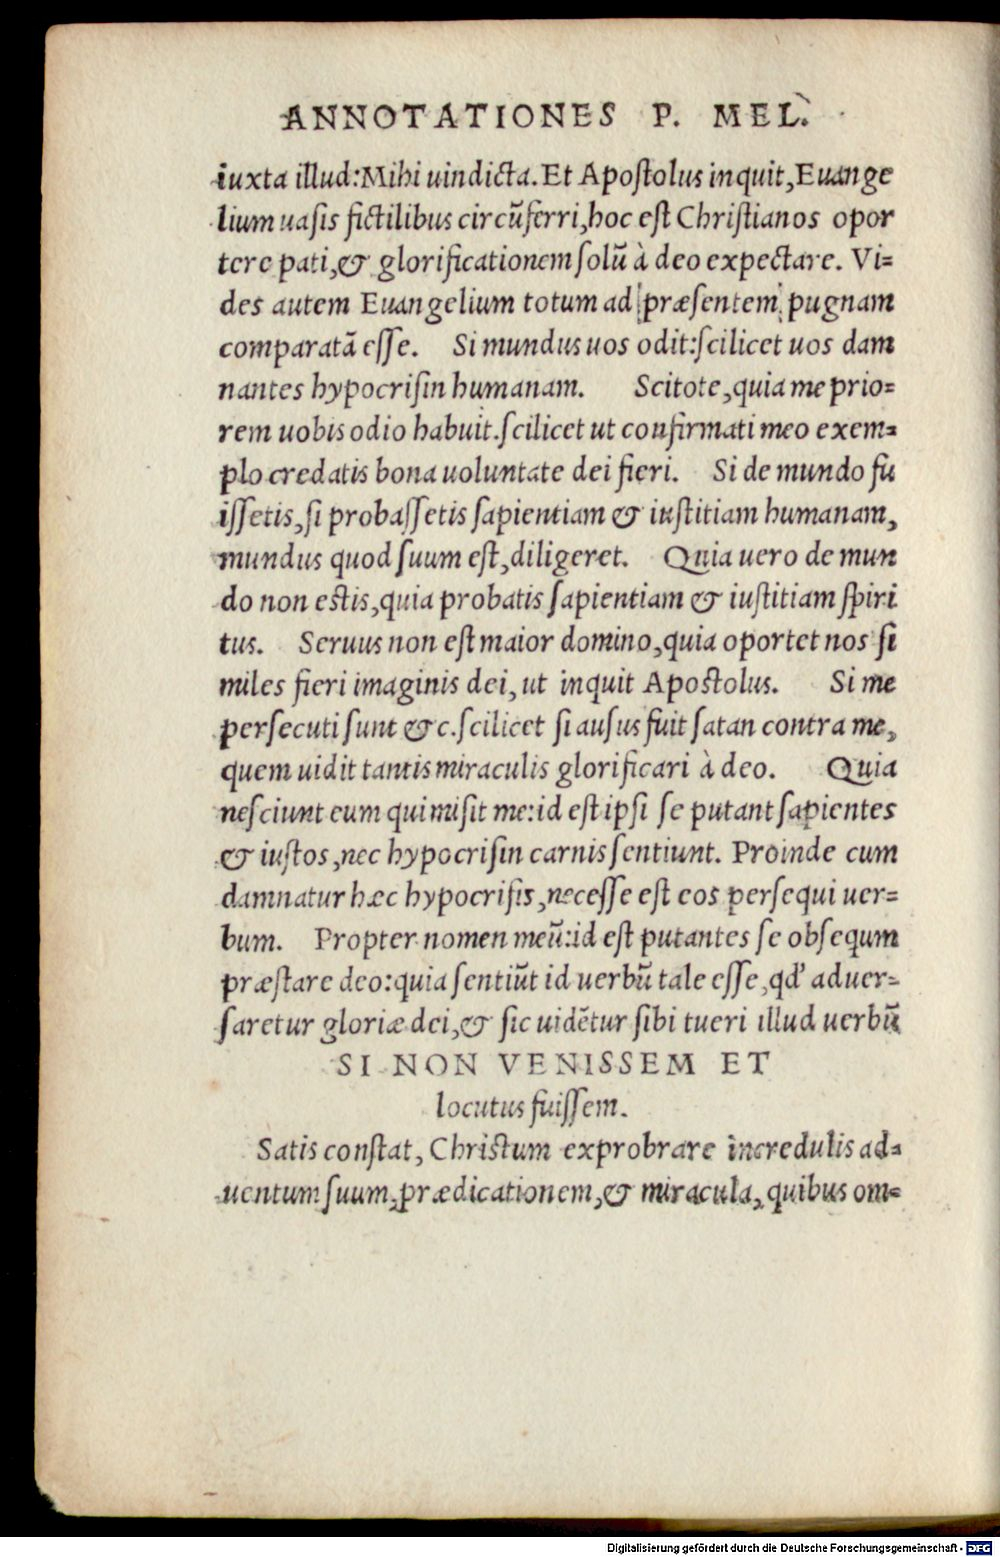 ANNOTATIONES P. MEL.
iuxta illud: Mihi uindicta. Et Apoſtolus inquit, Euange
lium uaſis fictilibus circũferri, hoc eſt Chriſtianos opor
tere pati, & glorificationem ſolũ à deo expectare. Vi=
des autem Euangelium totum ad præſentem pugnam
comparatã eſſe. Si mundus uos odit: ſcilicet uos dam
nantes hypocriſin humanam. Scitote, quia me prio=
rem uobis odio habuit. ſcilicet ut confirmati meo exem=
plo credatis bona uoluntate dei fieri. Si de mundo fu
iſſetis, ſi probaſſetis ſapientiam & iuſtitiam humanam,
mundus quod ſuum eſt, diligeret. Quia uero de mun
do non eſtis, quia probatis ſapientiam & iuſtitiam ſpiri
tus. Seruus non eſt maior domino, quia oportet nos ſi
miles fieri imaginis dei, ut inquit Apoſtolus. Si me
perſecuti ſunt &c. ſcilicet ſi auſus fuit ſatan contra me,
quem uidit tantis miraculis glorificari à deo. Quia
neſciunt eum qui miſit me: id eſt ipſi ſe putant ſapientes
& iuſtos, nec hypocriſin carnis ſentiunt. Proinde cum
damnatur hæc hypocriſis, neceſſe eſt eos perſequi uer=
bum. Propter nomen meũ: id eſt putantes ſe obſequm
præſtare deo: quia ſentiũt id uerbũ tale eſſe, qd' aduer=
ſaretur gloriæ dei, & ſic uidẽtur ſibi tueri illud uerbũ
SI NON VENISSEM ET
locutus fuiſſem.
Satis conſtat, Chriſtum exprobrare incredulis ad=
uentum ſuum, prædicationem, & miracula, quibus om=
Digitalisierung gefördert durch die Deutsche Forschungsgemeinschaft - DFG